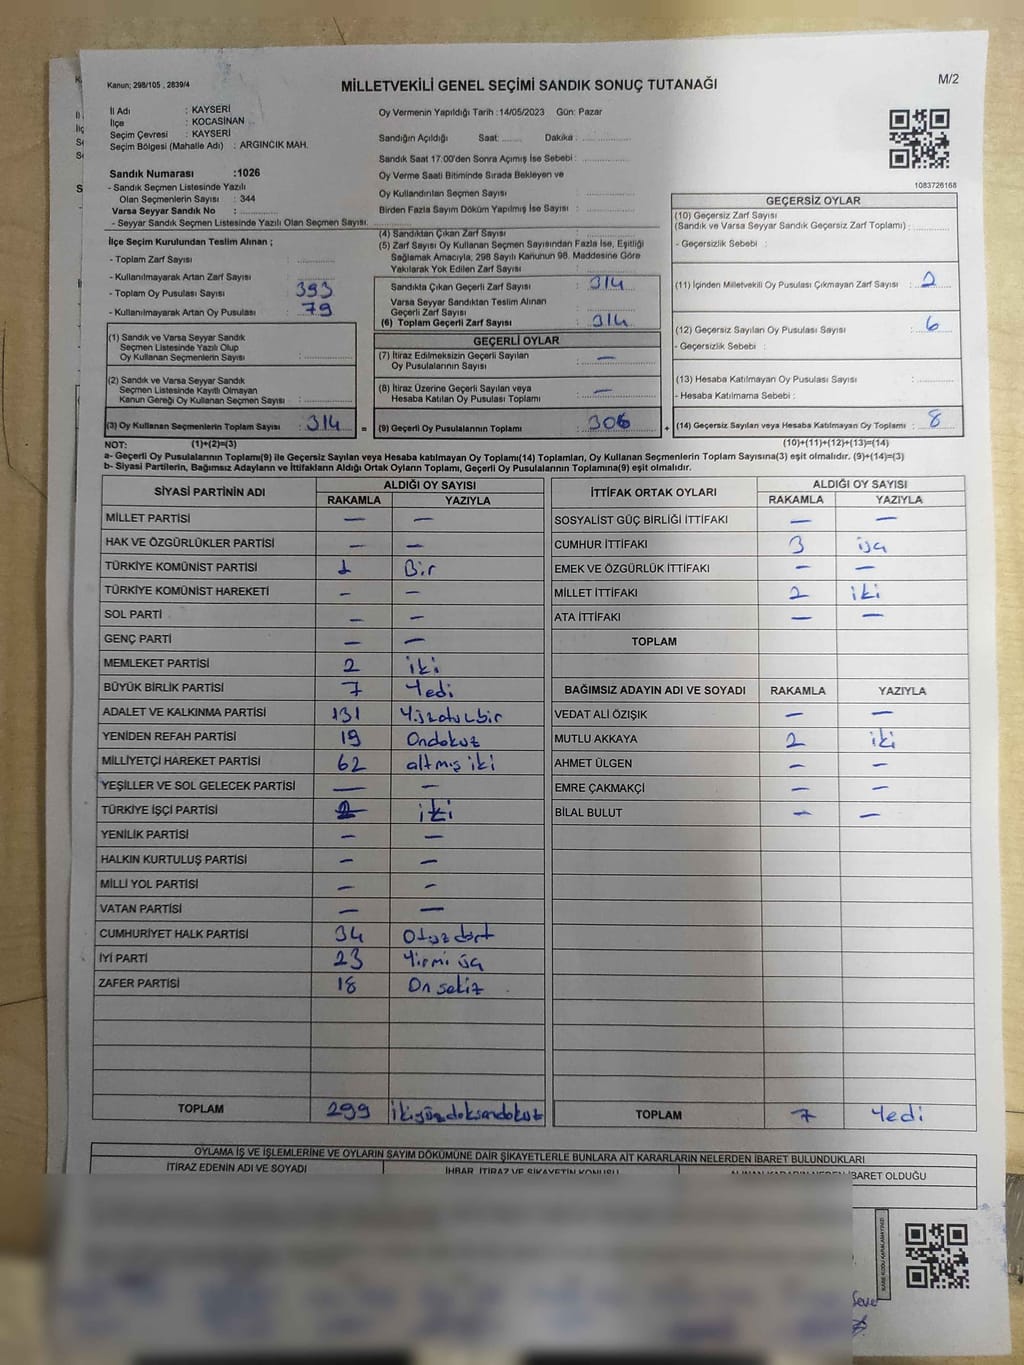 Kanun; 298/105 , 2839/4
MİLLETVEKİLİ GENEL SEÇİMİ SANDIK SONUÇ TUTANAĞI
M/2
İl Adı : KAYSERİ
İlçe : KOCASİNAN
Seçim Çevresi : KAYSERİ
Seçim Bölgesi (Mahalle Adı) : ARGINCIK MAH.
Oy Vermenin Yapıldığı Tarih :14/05/2023 Gün: Pazar
Sandığın Açıldığı Saat: ....... Dakika : ..............
Sandık Saat 17.00'den Sonra Açımış İse Sebebi : ..............
Oy Verme Saati Bitiminde Sırada Bekleyen ve
Oy Kullandırılan Seçmen Sayısı : ..............
Birden Fazla Sayım Döküm Yapılmış İse Sayısı : ..............
1083726168
Sandık Numarası :1026
- Sandık Seçmen Listesinde Yazılı
Olan Seçmenlerin Sayısı : 344
Varsa Seyyar Sandık No : ..............
- Seyyar Sandık Seçmen Listesinde Yazılı Olan Seçmen Sayısı. ..............
İlçe Seçim Kurulundan Teslim Alınan ;
- Toplam Zarf Sayısı : ..............
- Kullanılmayarak Artan Zarf Sayısı : ..............
- Toplam Oy Pusulası Sayısı : 393
- Kullanılmayarak Artan Oy Pusulası : 79
(1) Sandık ve Varsa Seyyar Sandık
Seçmen Listesinde Yazılı Olup
Oy Kullanan Seçmenlerin Sayısı : ..............
(2) Sandık ve Varsa Seyyar Sandık
Seçmen Listesinde Kayıtlı Olmayan
Kanun Gereği Oy Kullanan Seçmen Sayısı : ..............
(3) Oy Kullanan Seçmenlerin Toplam Sayısı : 314
(4) Sandıktan Çıkan Zarf Sayısı : ..............
(5) Zarf Sayısı Oy Kullanan Seçmen Sayısından Fazla İse, Eşitliği
Sağlamak Amacıyla; 298 Sayılı Kanunun 98. Maddesine Göre
Yakılarak Yok Edilen Zarf Sayısı : ..............
Sandıkta Çıkan Geçerli Zarf Sayısı : 314
Varsa Seyyar Sandıktan Teslim Alınan
Geçerli Zarf Sayısı : ..............
(6) Toplam Geçerli Zarf Sayısı : 314
GEÇERLİ OYLAR
(7) İtiraz Edilmeksizin Geçerli Sayılan
Oy Pusulalarının Sayısı : —
(8) İtiraz Üzerine Geçerli Sayılan veya
Hesaba Katılan Oy Pusulası Toplamı : —
= (9) Geçerli Oy Pusulalarının Toplamı : 306 +
GEÇERSİZ OYLAR
(10) Geçersiz Zarf Sayısı
(Sandık ve Varsa Seyyar Sandık Geçersiz Zarf Toplamı) : ..............
- Geçersizlik Sebebi :
(11) İçinden Milletvekili Oy Pusulası Çıkmayan Zarf Sayısı : 2
(12) Geçersiz Sayılan Oy Pusulası Sayısı : 6
- Geçersizlik Sebebi :
(13) Hesaba Katılmayan Oy Pusulası Sayısı : ..............
- Hesaba Katılmama Sebebi :
(14) Geçersiz Sayılan veya Hesaba Katılmayan Oy Toplamı : 8
NOT: (1)+(2)=(3) (10)+(11)+(12)+(13)=(14)
a- Geçerli Oy Pusulalarının Toplamı(9) ile Geçersiz Sayılan veya Hesaba katılmayan Oy Toplamı(14) Toplamları, Oy Kullanan Seçmenlerin Toplam Sayısına(3) eşit olmalıdır. (9)+(14)=(3)
b- Siyasi Partilerin, Bağımsız Adayların ve İttifakların Aldığı Ortak Oyların Toplamı, Geçerli Oy Pusulalarının Toplamına(9) eşit olmalıdır.
SİYASİ PARTİNİN ADI ALDIĞI OY SAYISI
RAKAMLA YAZIYLA
MİLLET PARTİSİ — —
HAK VE ÖZGÜRLÜKLER PARTİSİ — —
TÜRKİYE KOMÜNİST PARTİSİ 1 Bir
TÜRKİYE KOMÜNİST HAREKETİ — —
SOL PARTİ — —
GENÇ PARTİ — —
MEMLEKET PARTİSİ 2 iki
BÜYÜK BİRLİK PARTİSİ 7 Yedi
ADALET VE KALKINMA PARTİSİ 131 Yüzotuzbir
YENİDEN REFAH PARTİSİ 19 Ondokuz
MİLLİYETÇİ HAREKET PARTİSİ 62 altmış iki
YEŞİLLER VE SOL GELECEK PARTİSİ — —
TÜRKİYE İŞÇİ PARTİSİ 2 iki
YENİLİK PARTİSİ — —
HALKIN KURTULUŞ PARTİSİ — —
MİLLİ YOL PARTİSİ — —
VATAN PARTİSİ — —
CUMHURİYET HALK PARTİSİ 34 Otuz dört
İYİ PARTİ 23 Yirmi üç
ZAFER PARTİSİ 18 On sekiz
TOPLAM 299 ikiyüzdoksandokuz
İTTİFAK ORTAK OYLARI ALDIĞI OY SAYISI
RAKAMLA YAZIYLA
SOSYALİST GÜÇ BİRLİĞİ İTTİFAKI — —
CUMHUR İTTİFAKI 3 üç
EMEK VE ÖZGÜRLÜK İTTİFAKI — —
MİLLET İTTİFAKI 2 iki
ATA İTTİFAKI — —
TOPLAM
BAĞIMSIZ ADAYIN ADI VE SOYADI RAKAMLA YAZIYLA
VEDAT ALİ ÖZIŞIK — —
MUTLU AKKAYA 2 iki
AHMET ÜLGEN — —
EMRE ÇAKMAKÇİ — —
BİLAL BULUT — —
TOPLAM 7 Yedi
OYLAMA İŞ VE İŞLEMLERİNE VE OYLARIN SAYIM DÖKÜMÜNE DAİR ŞİKAYETLERLE BUNLARA AİT KARARLARIN NELERDEN İBARET BULUNDUKLARI
İTİRAZ EDENİN ADI VE SOYADI İHBAR, İTİRAZ VE ŞİKAYETİN KONUSU ALINAN KARARIN NEDEN İBARET OLDUĞU